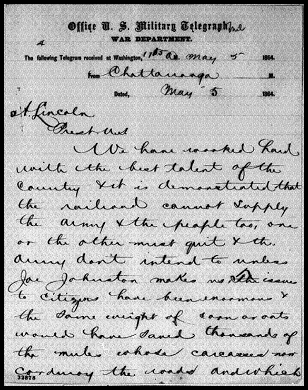 Office U. S. Military Telegraph,
WAR DEPARTMENT.
The following Telegram received at Washington, M. May 5 1864.
From Chattanooga
Dated, May 5 1864.
A Lincoln
Prest US
We have worked hard
with the best talent of the
country & it is demonstrated that
the railroad cannot supply
the army & the people too, one
or the other must quit & the
army don't intend to unless
Joe Johnston makes us The issues
to citizens have been enormous &
the same weight of corn or oats
would have saved thousands of
the mules whose carcasses now
corduroy the roads and which